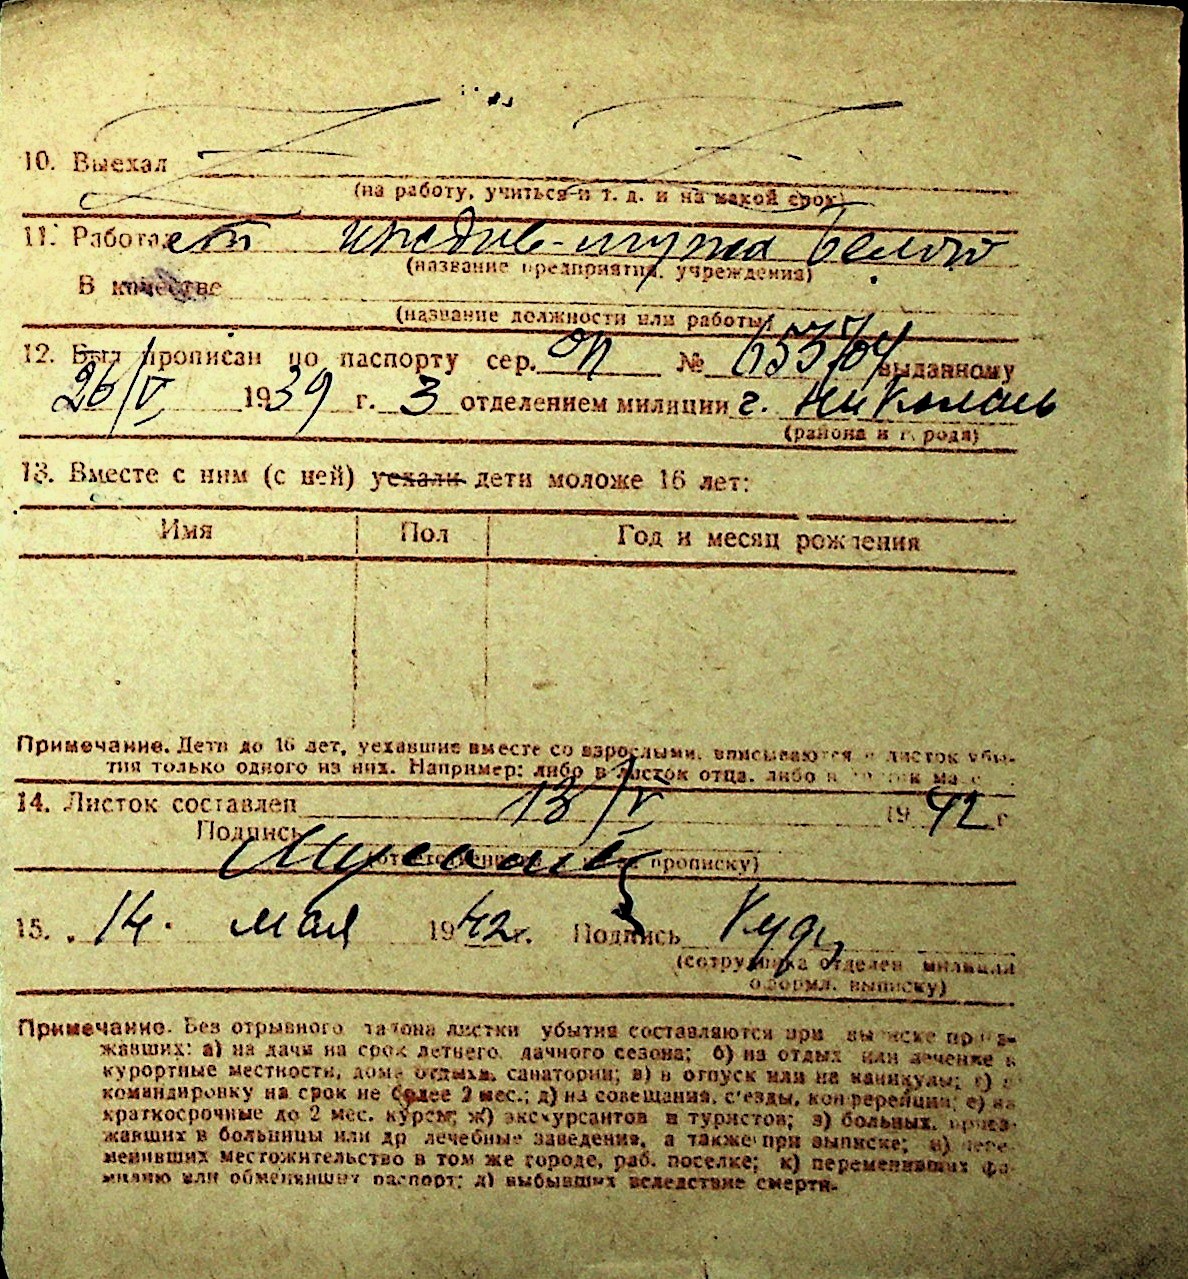 10. Выехал
(на работу, учиться и т. д. и на какой срок)
11. Работал
(название предприятия, учреждения)
В качестве
(название должности или работы)
12. Был прописан по паспорту сер. № выданному
26/V 1939 г. 3 отделением милиции г.
(района и города)
13. Вместе с ним (с ней) уехали дети моложе 16 лет:
Имя Пол Год и месяц рождения
Примечание. Дети до 16 лет, уехавшие вместе со взрослыми, вписываются в листок убы-
тия только одного из них. Например: либо в листок отца, либо в
14. Листок составлен 13/V 1942 г
Подпись
прописку)
15. 14. мая 1942 г. Подпись
(сотрудника отделен милиции
оформл. выписку)
Примечание. Без отрывного талона листки убытия составляются при выписке приез-
жавших: а) на дачи на срок летнего, дачного сезона; б) на отдых или лечение в
курортные местности, дома отдыха, санатории; в) в отпуск или на каникулы; г) в
командировку на срок не более 2 мес.; д) на совещания, съезды, конференции; е) на
краткосрочные до 2 мес. курсы; ж) экскурсантов и туристов; з) больных, приез-
жавших в больницы или др лечебные заведения, а также при выписке; и) пере-
менивших местожительство в том же городе, раб. поселке; к) переменивших фа-
милию или обменивших паспорт; л) выбывших вследствие смерти.